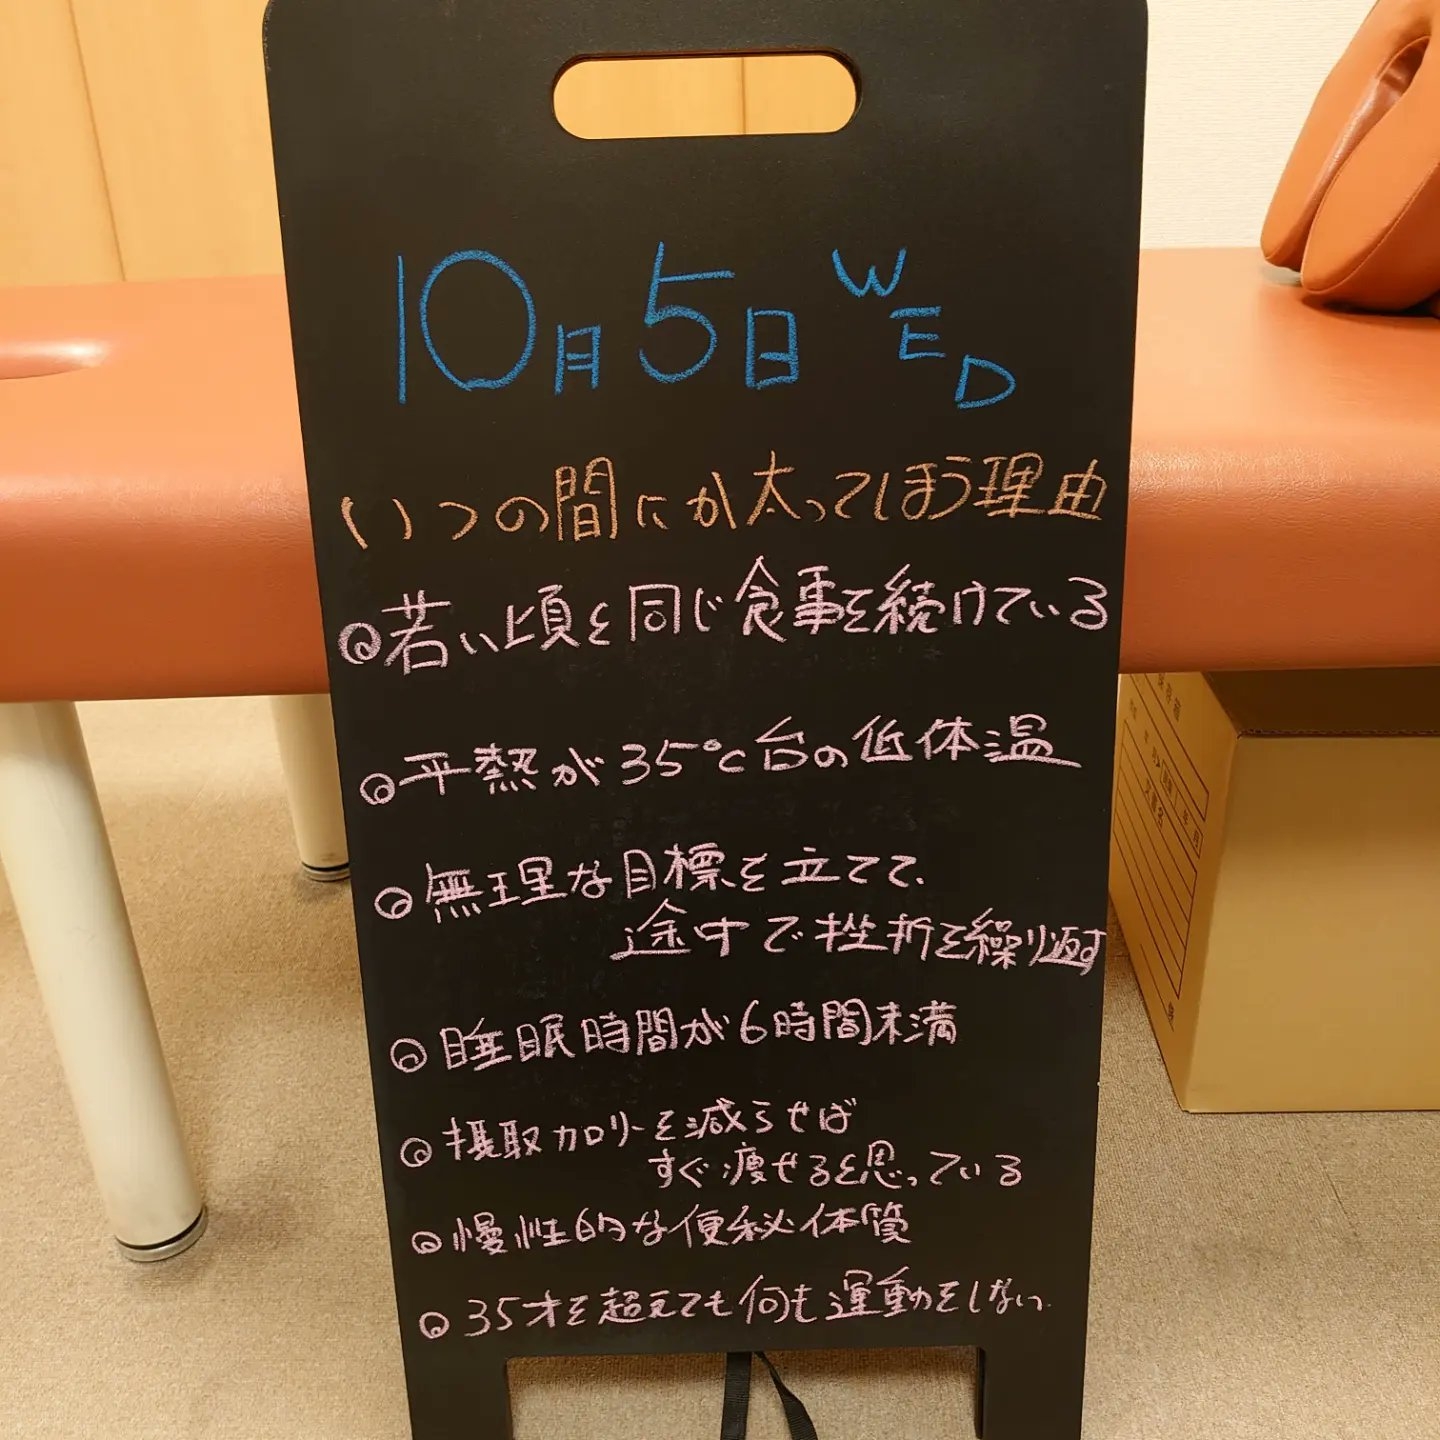 10月5日 WED
いつの間にか太ってしまう理由
◎若い頃と同じ食事を続けている
◎平熱が35℃台の低体温
◎無理な目標を立てて、
途中で挫折を繰り返す
◎睡眠時間が6時間未満
◎摂取カロリーを減らせば
すぐ痩せると思っている
◎慢性的な便秘体質
◎35才を超えても何も運動をしない